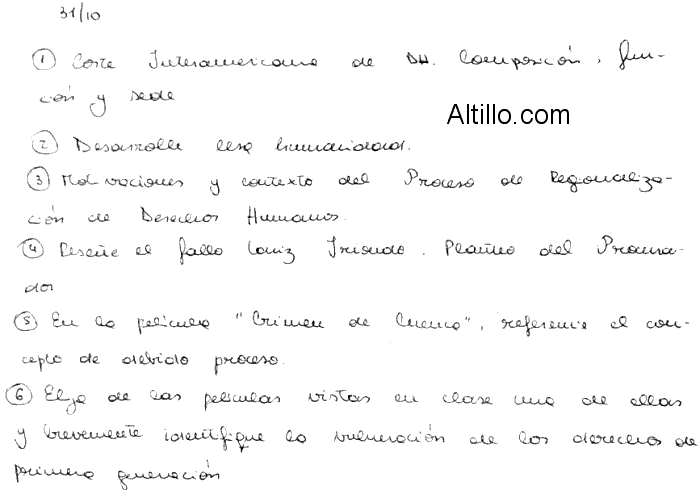 31/10
① Corte Interamericana de DH. Composición, fun-
ción y sede
Altillo.com
② Desarrolle lesa humanidad.
③ Motivaciones y contexto del Proceso de Regionaliza-
ción de Derechos Humanos.
④ Reseñe el fallo Lariz Iriondo. Planteo del Procura-
dor
⑤ En la película "Crimen de Cuenca", referencie el con-
cepto de debido proceso.
⑥ Elija de las películas vistas en clase una de ellas
y brevemente identifique la vulneración de los derechos de
primera generación